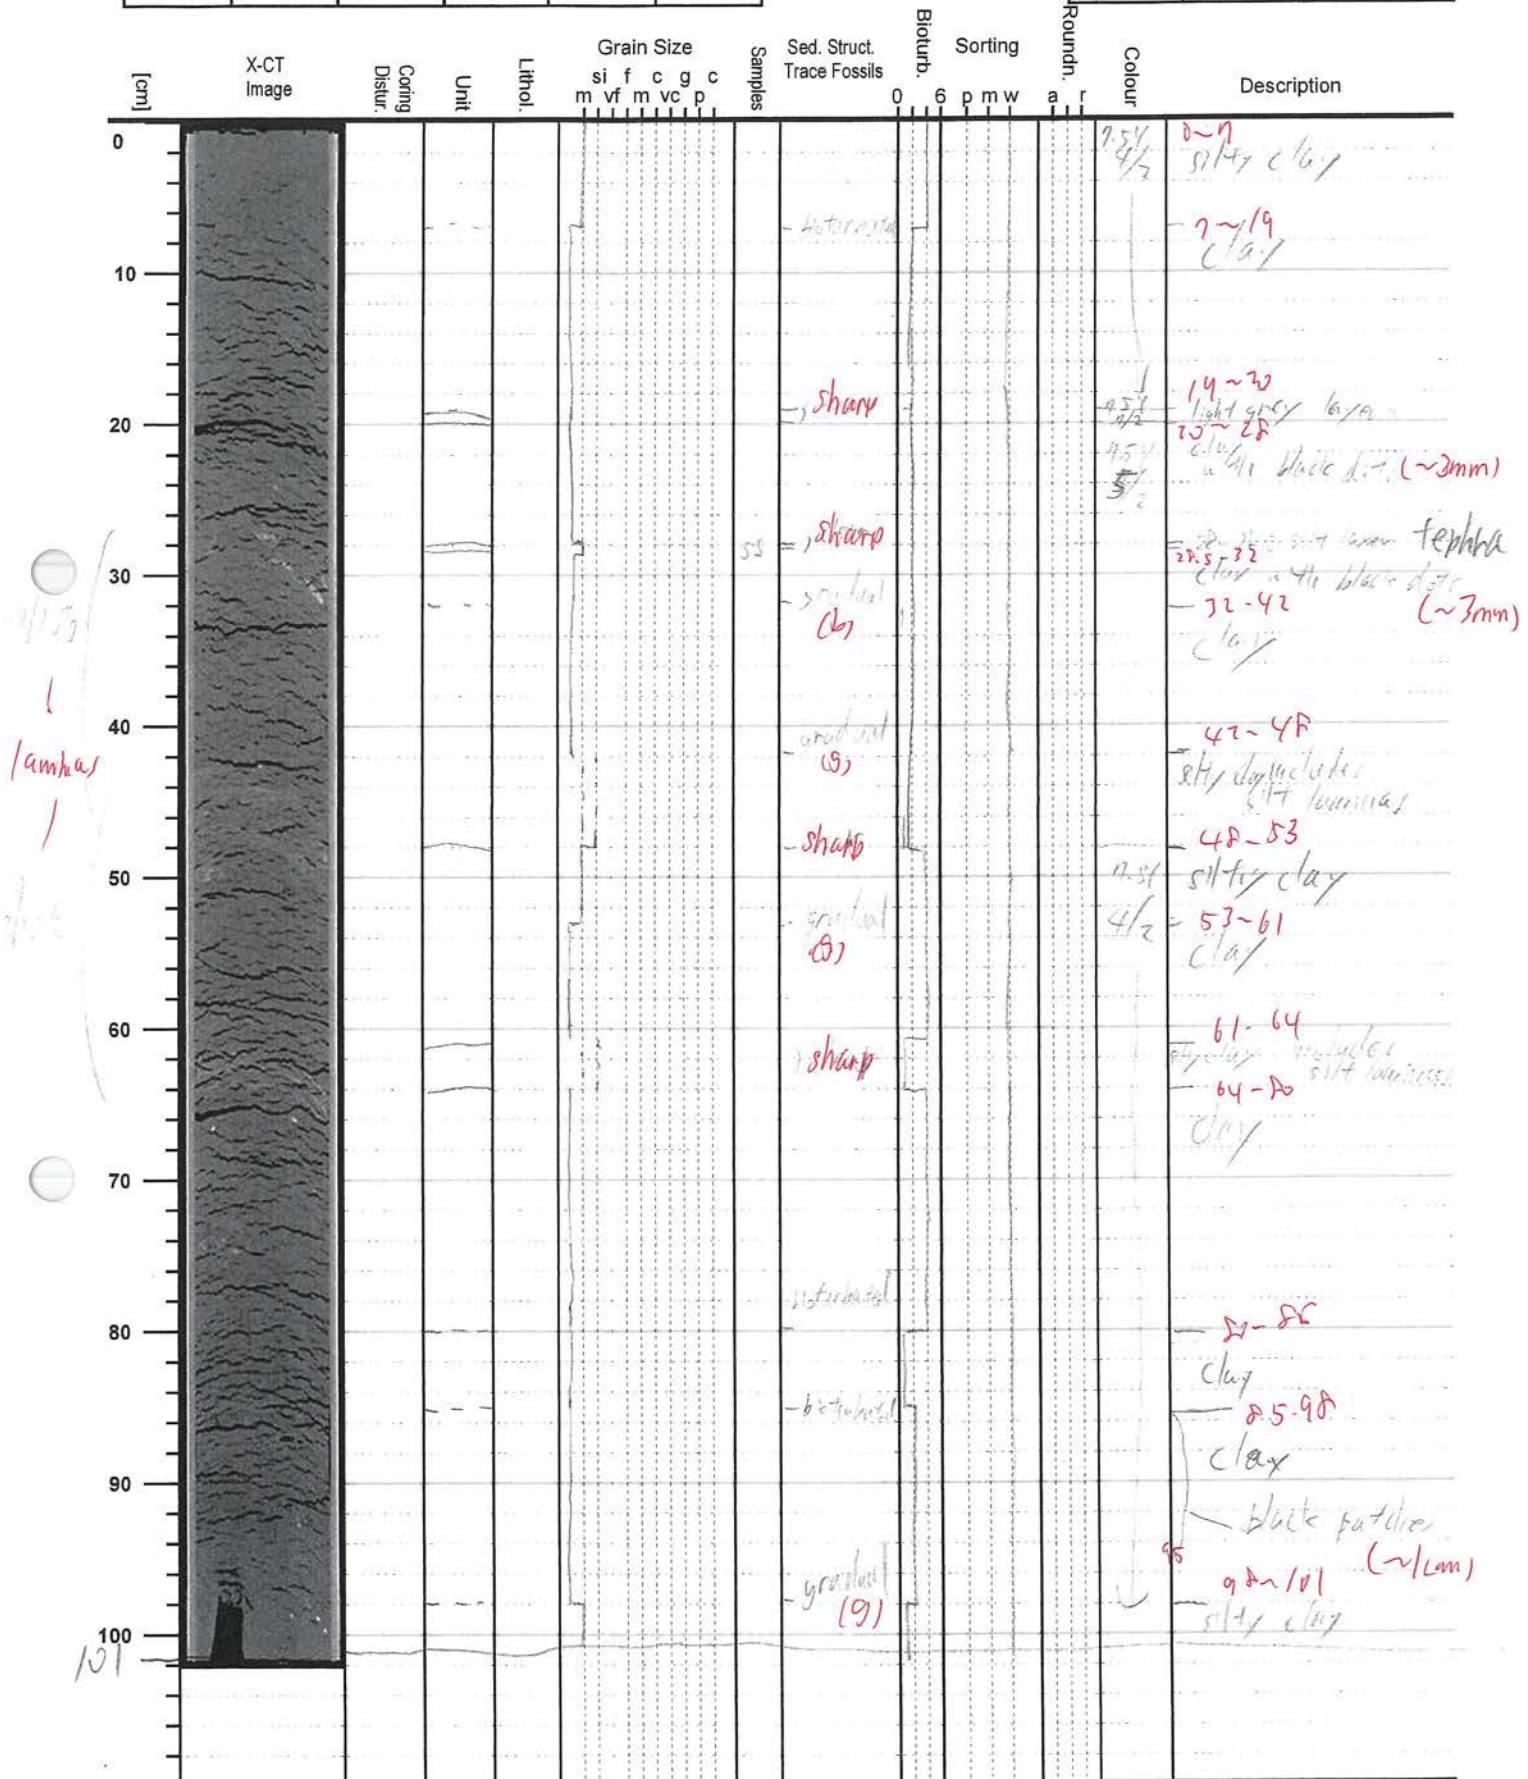 [cm]
X-CT
Image
Coring
Distur.
Unit
Lithol.
Grain Size
si f c g c
m vf m vc p
Samples
Sed. Struct.
Trace Fossils
Bioturb.
0 6
Sorting
p m w
Roundn.
a r
Colour
Description
0
10
20
30
40
50
60
70
80
90
100
101
laminas
SS
bioturbated
sharp
sharp
gradual
(b)
gradual
(g)
sharp
gradual
(g)
sharp
bioturbated
bioturbated
gradual
(g)
7.5Y
4/2
7.5Y
7/2
7.5Y
5/2
7.5Y
4/2
0~7
silty clay
7~19
clay
19~20
light grey layer
20~28
clay
with black dots (~3mm)
silt layer tephra
28.5-32
clay with black dots
(~3mm)
32-42
clay
42-48
silty clay includes
silt laminas
48-53
silty clay
53~61
clay
61-64
silty clay includes
silt laminas
64-80
clay
80-85
clay
85-98
clay
black patches
(~1cm)
95
98~101
silty clay